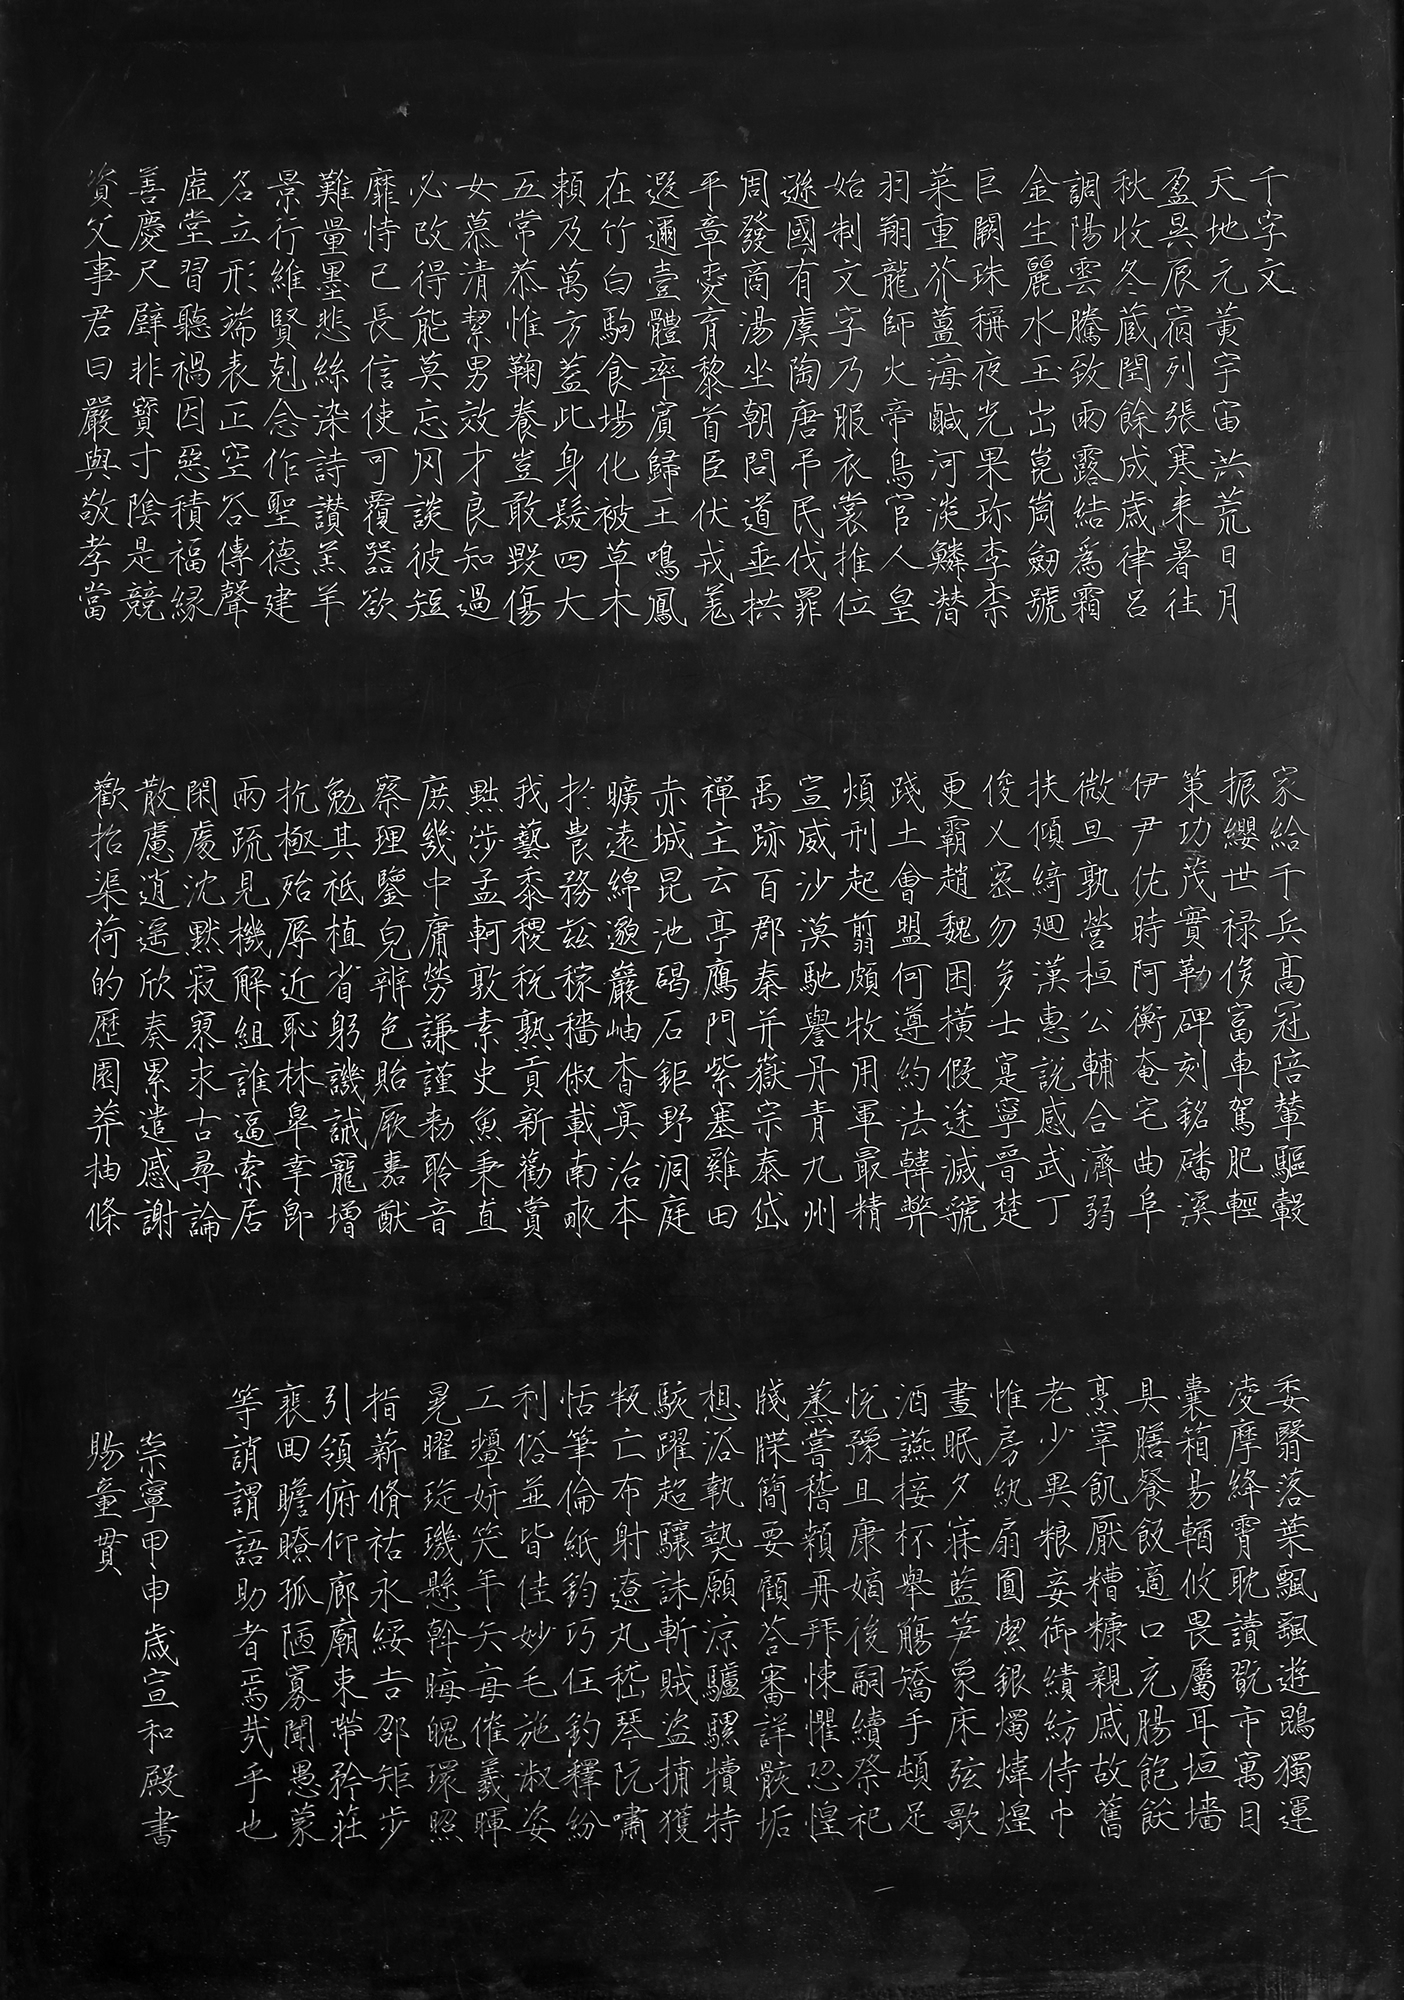 千字文
天地元黃宇宙洪荒日月
盈昃辰宿列張寒来暑往
秋收冬蔵閏餘成歲律呂
調陽雲騰致雨露結為霜
金生麗水玉出崑崗劒號
巨闕珠稱夜光果珎李柰
菜重芥薑海鹹河淡鱗潛
羽翔龍師火帝鳥官人皇
始制文字乃服衣裳推位
遜國有虞陶唐弔民伐罪
周發商湯坐朝問道垂拱
平章愛育黎首臣伏戎羌
遐邇壹體率賓歸王鳴鳳
在竹白駒食場化被草木
賴及萬方蓋此身髮四大
五常恭惟鞠養豈敢毀傷
女慕清絜男效才良知過
必改得能莫忘罔談彼短
靡恃己長信使可覆器欲
難量墨悲絲染詩讃羔羊
景行維賢剋念作聖德建
名立形端表正空谷傳聲
虛堂習聽禍因惡積福緣
善慶尺璧非寶寸陰是競
資父事君曰嚴與敬孝當
家給千兵高冠陪輦驅轂
振纓世禄侈富車駕肥輕
策功茂實勒碑刻銘磻溪
伊尹佐時阿衡奄宅曲阜
微旦孰營桓公輔合濟弱
扶傾綺廻漢惠説感武丁
俊乂密勿多士寔寧晉楚
更霸趙魏困橫假途滅虢
踐土會盟何遵約法韓弊
煩刑起翦頗牧用軍最精
宣威沙漠馳譽丹青九州
禹跡百郡秦并嶽宗泰岱
禪主云亭鴈門紫塞雞田
赤城昆池碣石鉅野洞庭
曠遠綿邈巖岫杳冥治本
於農務茲稼穡俶載南畝
我藝黍稷稅熟貢新勸賞
黜陟孟軻敦素史魚秉直
庶幾中庸勞謙謹勑聆音
察理鑒皃辨色貽厥嘉猷
勉其祗植省躬譏誡寵增
抗極殆辱近恥林皋幸即
兩疏見機解組誰逼索居
閑處沈默寂寥求古尋論
散慮逍遙欣奏累遣慼謝
歡招渠荷的歷園莽抽條
委翳落葉飄颻遊鵾獨運
凌摩絳霄耽讀翫市寓目
囊箱易輶攸畏屬耳垣墙
具膳餐飯適口充腸飽飫
烹宰飢厭糟糠親戚故舊
老少異粮妾御績紡侍巾
帷房紈扇圓潔銀燭煒煌
晝眠夕寐藍笋象床弦歌
酒讌接杯舉觴矯手頓足
悅豫且康嫡後嗣續祭祀
蒸嘗稽顙再拜悚懼恐惶
牋牒簡要顧荅審詳骸垢
想浴執熱願涼驢騾犢特
駭躍超驤誅斬賊盜捕獲
叛亡布射遼丸嵇琴阮嘯
恬筆倫紙鈞巧任釣釋紛
利俗並皆佳妙毛施淑姿
工顰妍笑年矢每催羲暉
晃曜琁璣懸斡晦魄環照
指薪脩祜永綏吉邵矩步
引領俯仰廊廟束帶矜莊
裴回瞻瞭孤陋寡聞愚蒙
等誚謂語助者焉哉乎也
崇寧甲申歲宣和殿書
賜童貫